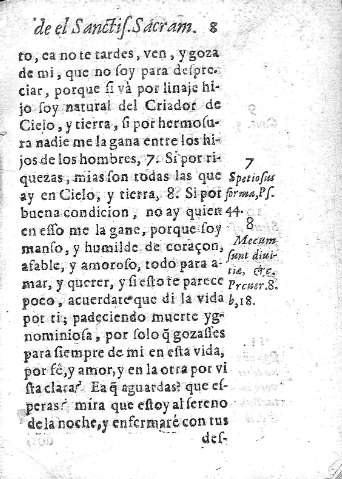 de el Sanctis. Sacram. 8
to, ea no te tardes, ven, y goza
de mi, que no soy para despre-
ciar, porque si và por linaje hi-
jo soy natural del Criador de
Cielo, y tierra, si por hermosu-
ra nadie me la gana entre los hi-
jos de los hombres, 7. Si por ri-
quezas, mias son todas las que
ay en Cielo, y tierra, 8. Si por
buena condicion, no ay quien
en esso me la gane, porque soy
manso, y humilde de coraçon,
afable, y amoroso, todo para a-
mar, y querer, y si esto te parece
poco, acuerdate que di la vida
por ti; padeciendo muerte yg-
nominiosa, por solo q̃ gozasses
para siempre de mi en esta vida,
por fê, y amor, y en la otra por vi
sta clara? Ea q̃ aguardas? que es-
peras? mira que estoy al sereno
de la noche, y enfermaré con tus
des-
7
Spetiosus
forma, Ps.
44.
8
Mecum
sunt divi-
tiæ, &c.
Prouer. 8.
b, 18.